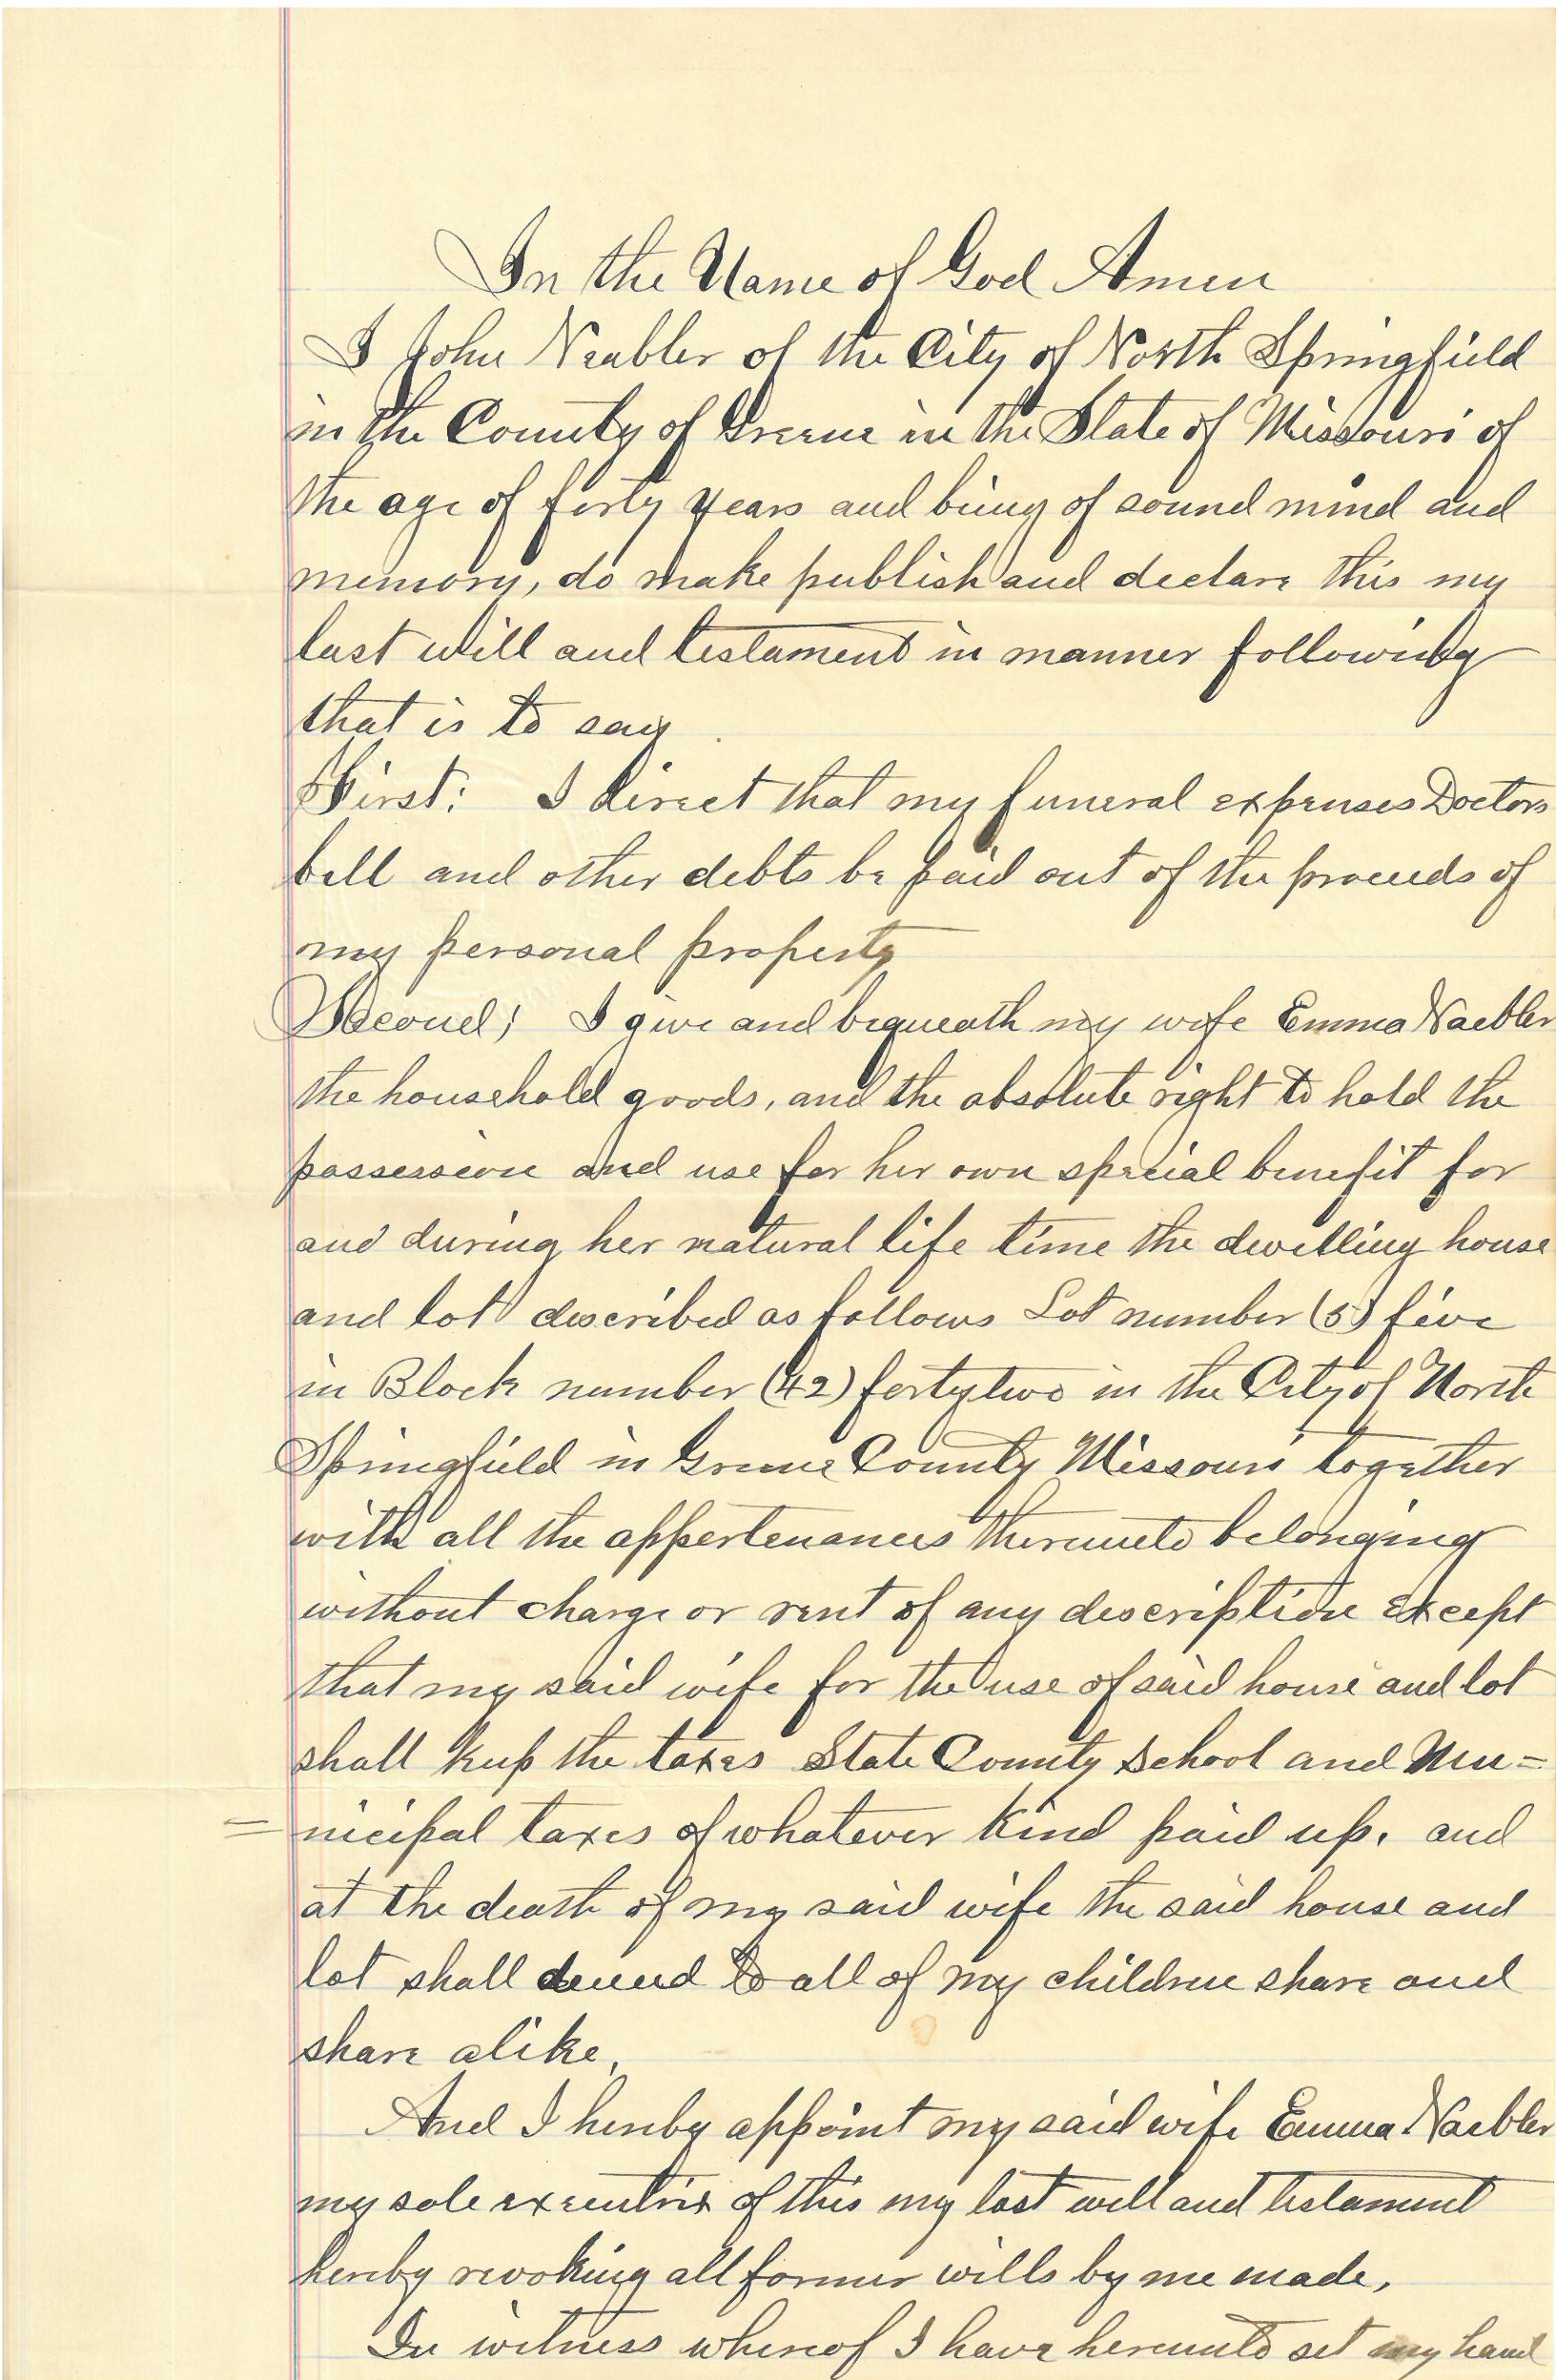 In the Name of God Amen
I John Neabler of the City of North Springfield
in the County of Greene in the State of Missouri of
the age of forty years and being of sound mind and
memory, do make publish and declare this my
last will and testament in manner following
that is to say
First: I direct that my funeral expenses Doctors
bill and other debts be paid out of the proceeds of
my personal property
Second; I give and bequeath my wife Emma Naebler
the household goods, and the absolute right to hold the
possession and use for her own special benefit for
and during her natural life time the dwelling house
and lot described as follows Lot number (5) five
in Block number (42) fortytwo in the City of North
Springfield in Greene County Missouri together
with all the appertenances thereunto belonging
without charge or rent of any description except
that my said wife for the use of said house and lot
shall keep the taxes State County School and Mu=
=nicipal taxes of whatever kind paid up. and
at the death of my said wife the said house and
lot shall to all of my children share and
share alike,
And I hereby appoint my said wife Emma Naebler
my sole executrix of this my last will and testament
hereby revoking all former wills by me made,
In witness whereof I have hereunto set my hand